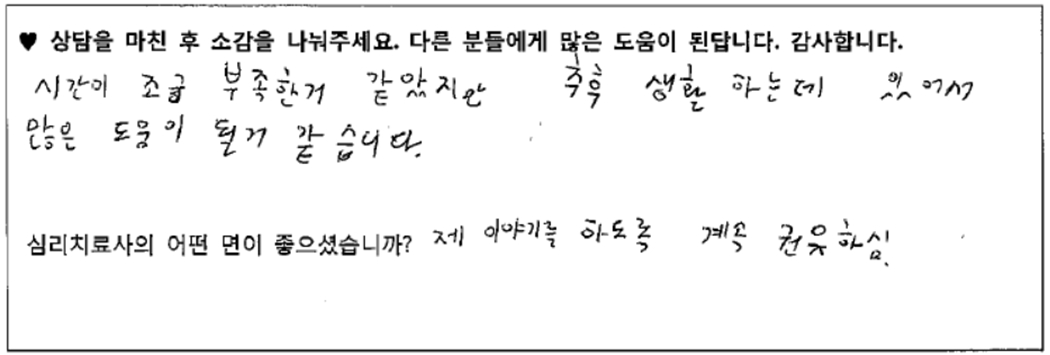 ♥ 상담을 마친 후 소감을 나눠주세요. 다른 분들에게 많은 도움이 된답니다. 감사합니다.
시간이 조금 부족한거 같았지만 추후 생활 하는데 있어서
많은 도움이 될거 같습니다.
심리치료사의 어떤 면이 좋으셨습니까? 제 이야기를 하도록 계속 권유하심.